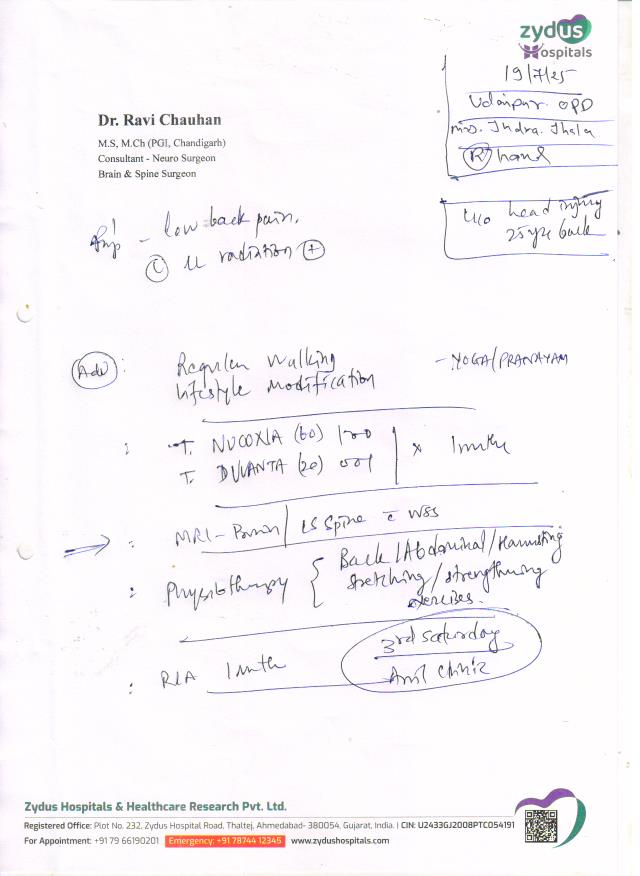 zydus
Hospitals
19/7/25
Udaipur OPD
Mrs. Indra Jhala
(R) hand
H/o head injury
25 yrs back
Dr. Ravi Chauhan
M.S, M.Ch (PGI, Chandigarh)
Consultant - Neuro Surgeon
Brain & Spine Surgeon
- low back pain.
radiation (+)
Adv :
Regular Walking
lifestyle modification
- YOGA/PRANAYAM
: T. NUCOXIA (60) 100
T. DULANTA (20) 001
x 1 mnth
: MRI - Brain / LS Spine c WSS
: Physiotherapy { Back/Abdominal/Hamstring
stretching/strengthening
exercises.
: R/A 1 mnth
3rd saturday
Amil clinic
Zydus Hospitals & Healthcare Research Pvt. Ltd.
Registered Office: Plot No. 232, Zydus Hospital Road, Thaltej, Ahmedabad- 380054, Gujarat, India. | CIN: U2433GJ2008PTC054191
For Appointment: +91 79 66190201 Emergency: +91 78744 12345 www.zydushospitals.com